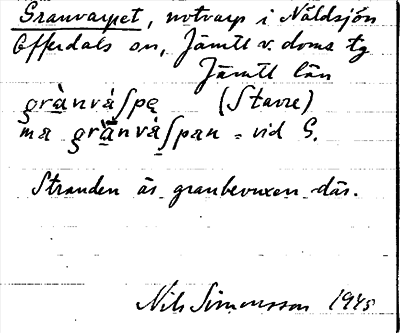 Granvarpet, notvarp i Näldsjön
Offerdals sn, Jämtl v. doms tg
Jämtl län
grànváʃpe̜ (Stavre)
mä grànváʃpan = vid G.
Stranden äs granbevuxen däs.
Nils Simonsson 1945